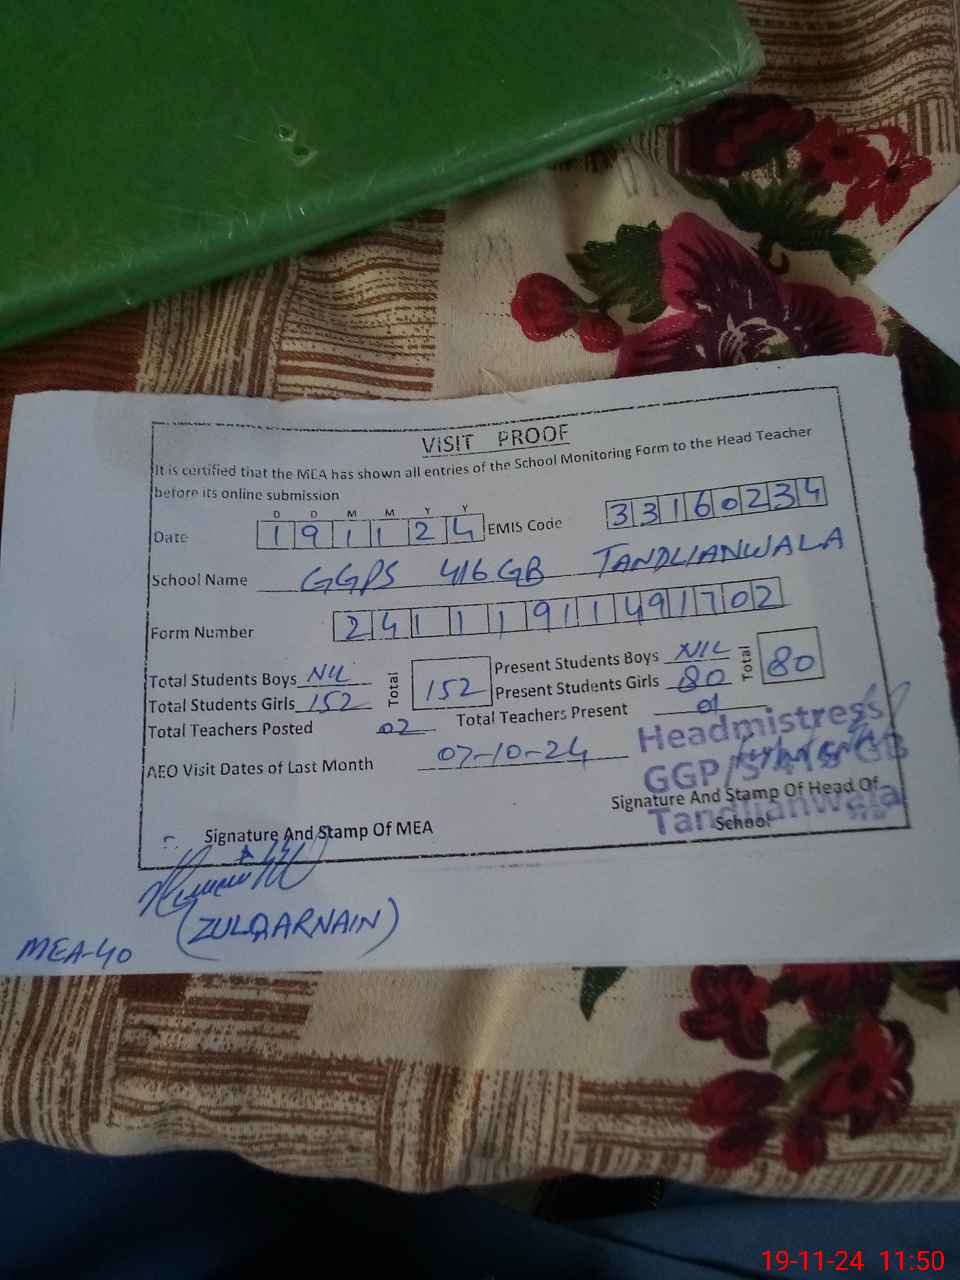 VISIT PROOF
It is certified that the MEA has shown all entries of the School Monitoring Form to the Head Teacher
before its online submission
D D M M Y Y
Date 191124 EMIS Code 33160234
School Name GGPS 416 GB TANDLIANWALA
Form Number 24111911491702
Total Students Boys NIL Total 152 Present Students Boys NIL Total 80
Total Students Girls 152 Present Students Girls 80
Total Teachers Posted 02 Total Teachers Present 01
AEO Visit Dates of Last Month 07-10-24
Headmistress
GGP/S GB
Tandlianwala
Signature And Stamp Of MEA Signature And Stamp Of Head Of
School
(ZULQARNAIN)
MEA-40
19-11-24 11:50